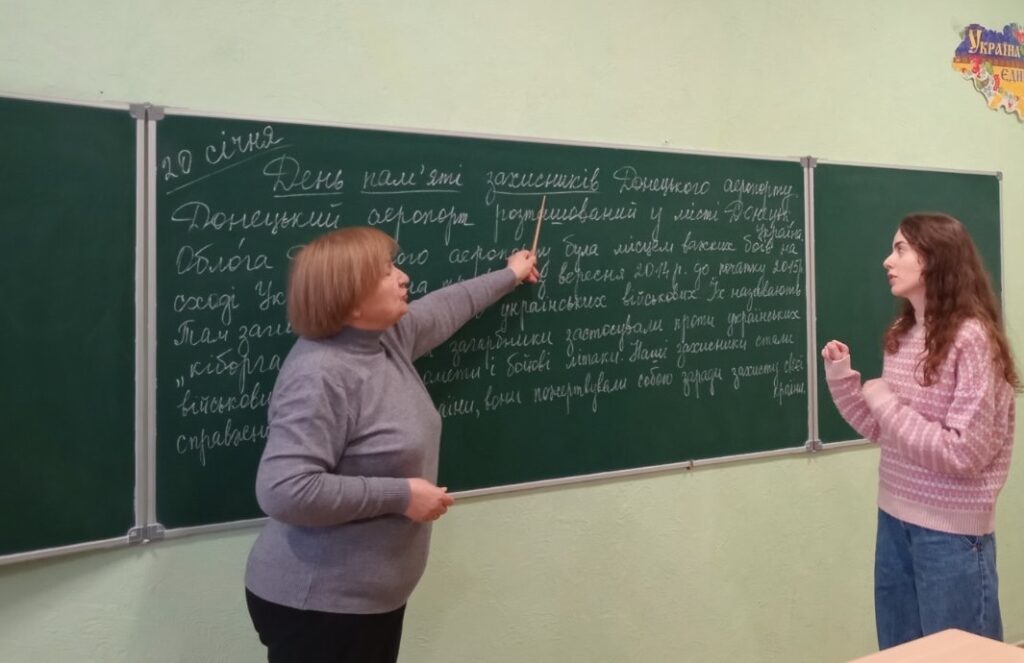 20 січня
День пам'яті захисників Донецького аеропорту.
Донецький аеропорт розташований у місті Донецьк
Україна.
Облога аеропорту була місцем важких боїв на
сході вересня 2014 р. до початку 2015 р.
Там українських військових. Їх називають
„кіборга загарбники застосували проти українських
військови і бойові літаки. Наші захисники стали
справжн їни, вони пожертвували собою заради захисту своєї
країни.
УКРАЇНА
ЄДИ